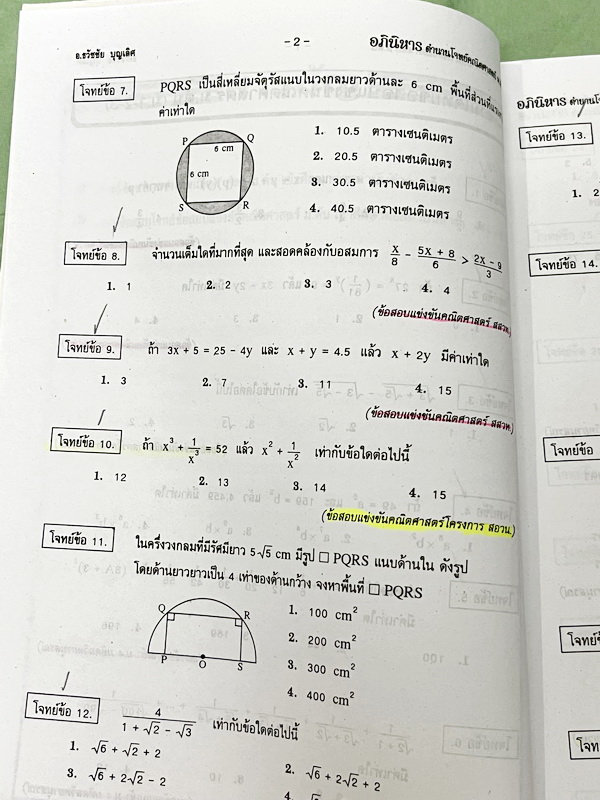 อ.ธวัชชัย บุญเลิศ
- 2 -
อภินิหาร ตำนานโจทย์คณิตศาสตร์
โจทย์ข้อ 7.
PQRS เป็นสี่เหลี่ยมจัตุรัสแนบในวงกลมยาวด้านละ 6 cm พื้นที่ส่วนที่
ค่าเท่าใด
P
Q
6 cm
6 cm
S
R
1. 10.5 ตารางเซนติเมตร
2. 20.5 ตารางเซนติเมตร
3. 30.5 ตารางเซนติเมตร
4. 40.5 ตารางเซนติเมตร
โจทย์ข้อ 8.
จำนวนเต็มใดที่มากที่สุด และสอดคล้องกับอสมการ x/8 - (5x + 8)/6 > (2x - 9)/3
1. 1 2. 2 3. 3 4. 4
(ข้อสอบแข่งขันคณิตศาสตร์ สสวท.)
โจทย์ข้อ 9.
ถ้า 3x + 5 = 25 - 4y และ x + y = 4.5 แล้ว x + 2y มีค่าเท่าใด
1. 3 2. 7 3. 11 4. 15
(ข้อสอบแข่งขันคณิตศาสตร์ สสวท.)
โจทย์ข้อ 10.
ถ้า x³ + 1/x³ = 52 แล้ว x² + 1/x² เท่ากับข้อใดต่อไปนี้
1. 12 2. 13 3. 14 4. 15
(ข้อสอบแข่งขันคณิตศาสตร์โครงการ สอวน.)
โจทย์ข้อ 11.
ในครึ่งวงกลมที่มีรัศมียาว 5√5 cm มีรูป □ PQRS แนบด้านใน ดังรูป
โดยด้านยาวยาวเป็น 4 เท่าของด้านกว้าง จงหาพื้นที่ □ PQRS
Q
R
P
O
S
1. 100 cm²
2. 200 cm²
3. 300 cm²
4. 400 cm²
โจทย์ข้อ 12.
4/(1 + √2 - √3) เท่ากับข้อใดต่อไปนี้
1. √6 + √2 + 2
2. √6 + 2√2 + 2
3. √6 + 2√2 - 2
4.
อภินิหาร
โจทย์ข้อ 13.
1. 2
โจทย์ข้อ 14.
โจทย์ข้อ
โจทย์ข้อ